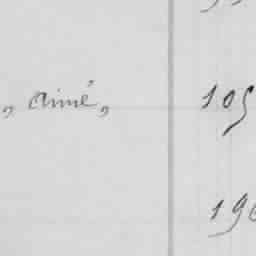 „ Aimé „ 105
190